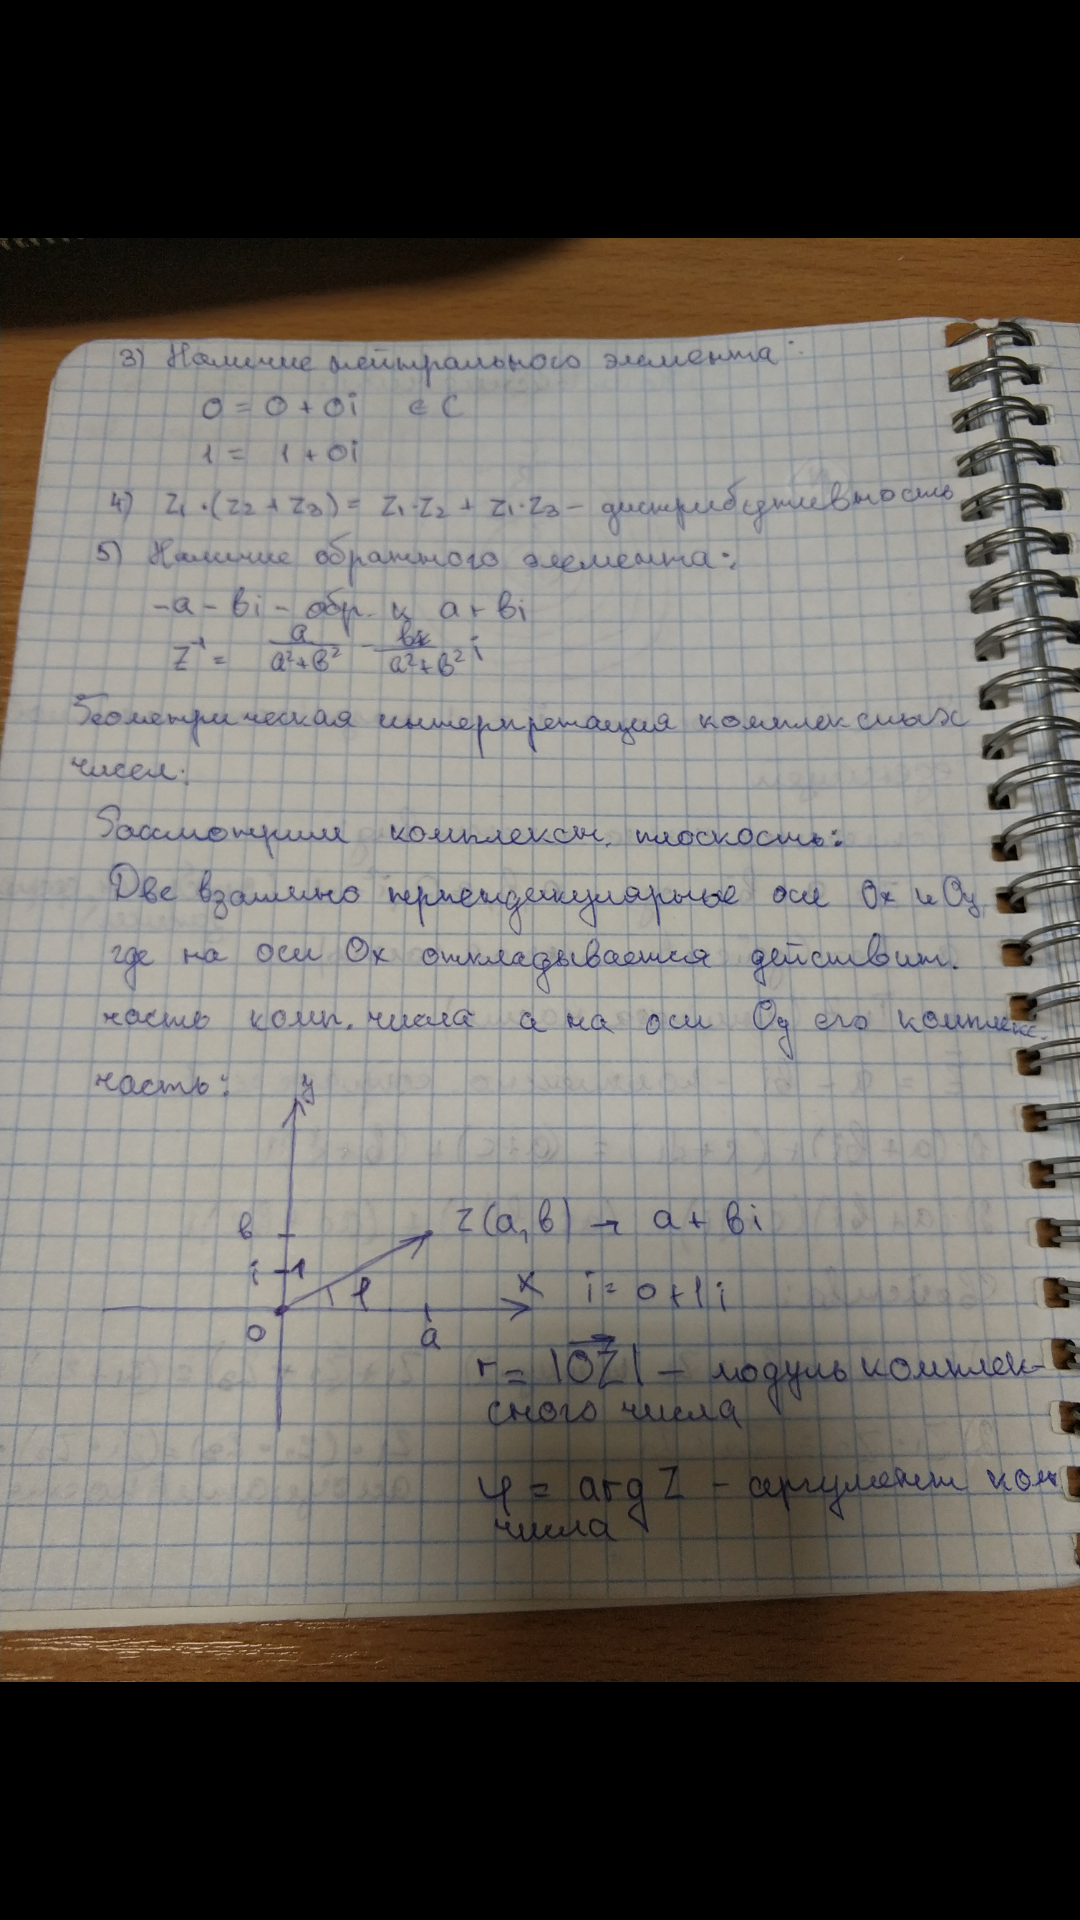 3) Наличие нейтрального элемента:
0 = 0 + 0i ∈ C
1 = 1 + 0i
4) Z₁ · (Z₂ + Z₃) = Z₁·Z₂ + Z₁·Z₃ – дистрибутивность
5) Наличие обратного элемента:
-a - bi - обр. к a + bi
Z⁻¹ = a/(a²+b²) - b/(a²+b²) i
Геометрическая интерпретация комплексных
чисел:
Рассмотрим комплексн. плоскость:
Две взаимно перпендикулярные оси Ox и Oy,
где на оси Ox откладывается действит.
часть комп. числа а на оси Oy его комплекс.
часть:
y
b
Z(a, b) → a + bi
i
1
φ
x
i = 0 + 1i
0
a
r = |OZ| – модуль комплек-
сного числа
φ = arg Z – аргумент ком
числа